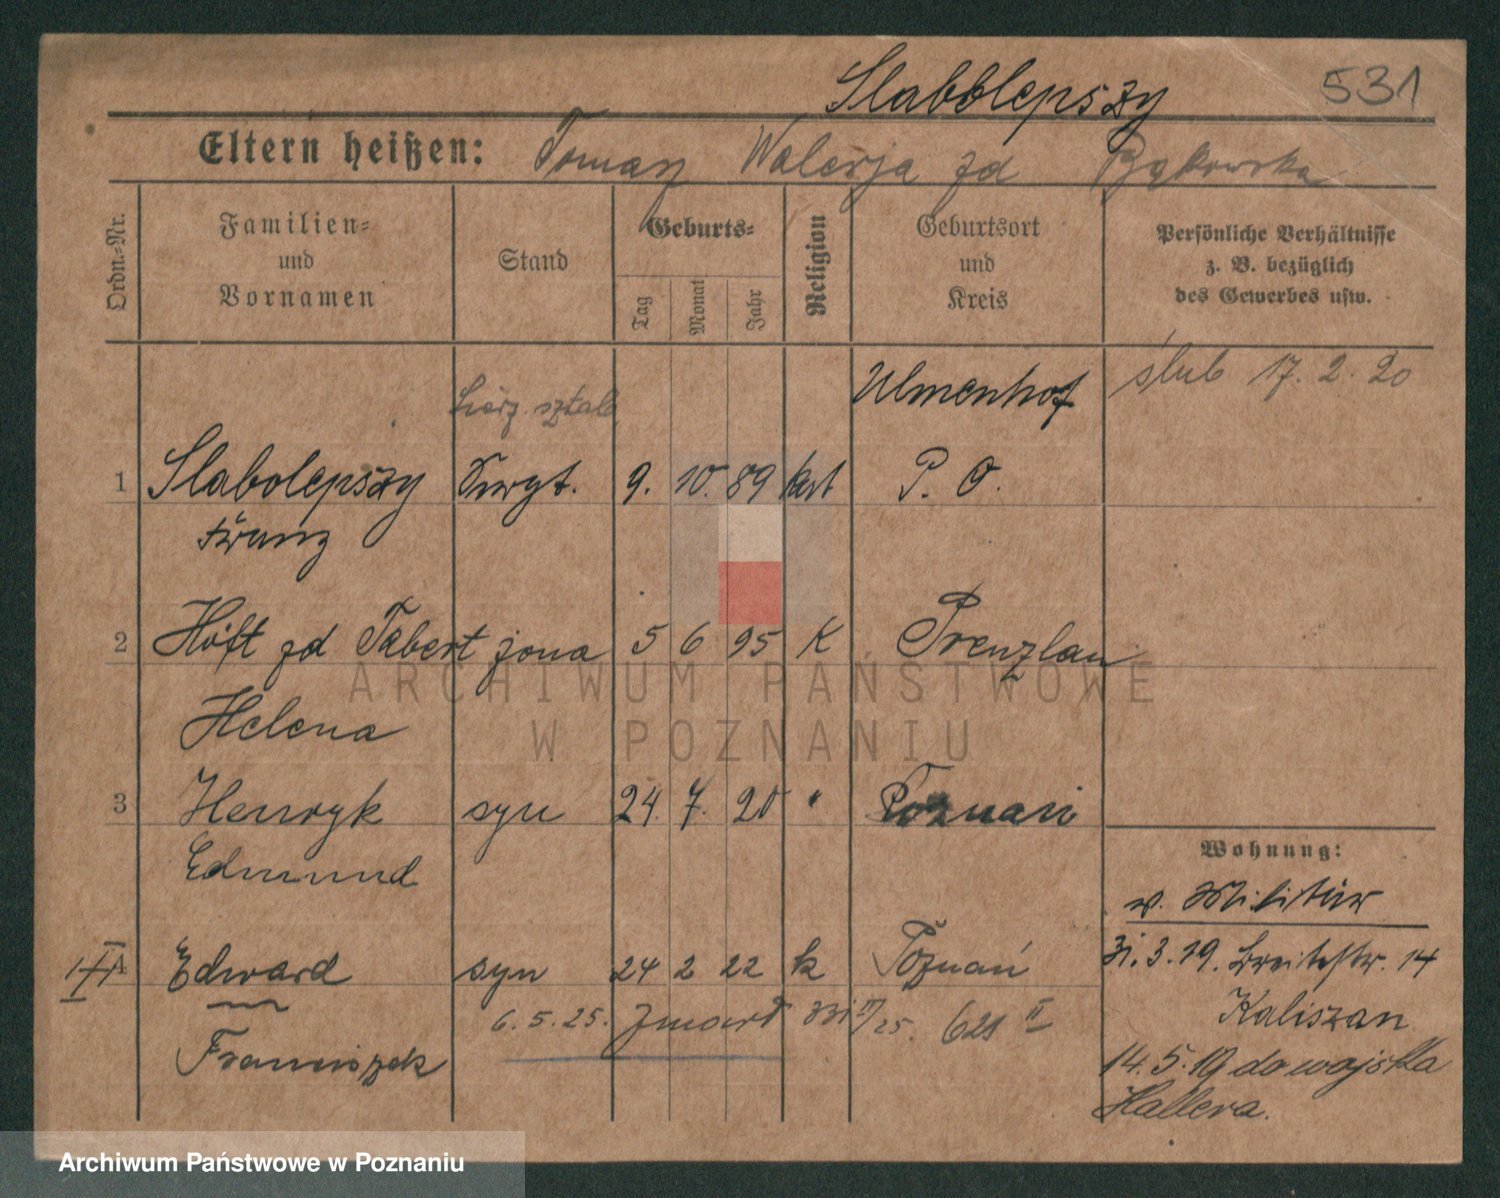 Slabolepszy 531
Eltern heißen: Tomasz Walerja zd Bąkowska
Ordn.-Nr.
Familien- und Vornamen
Stand
Geburts-
Tag
Monat
Jahr
Religion
Geburtsort und Kreis
Persönliche Verhältnisse
z. B. bezüglich
des Gewerbes usw.
sierż. sztab. Ulmenhof ślub 17. 2. 20
1 Slabolepszy 9. 10. 89 kat P. O.
Franz
2 Höft zd Tabert żona 5 6 95 K Prenzlau
Helena
3 Henryk syn 24. 7. 20 " Poznań
Edmund
Wohnung:
v. Militär
4 Edward syn 24 2 22 k Poznań
31. 3. 19. Breitestr. 14
6. 5. 25. zmarł 621 II
Kaliszan
Franciszek
14. 5. 19 do wojska
Hallera.
ARCHIWUM PAŃSTWOWE
W POZNANIU
Archiwum Państwowe w Poznaniu